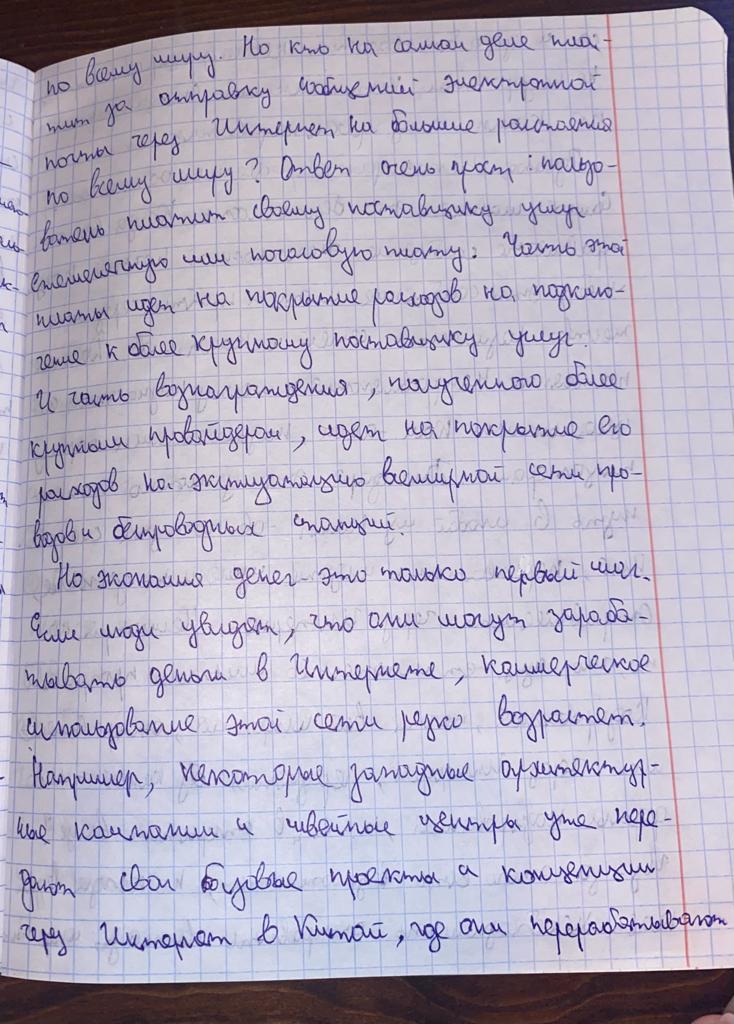 по всему миру. Но кто на самом деле пла-
тит за отправку сообщений электронной
почты через Интернет на большие расстояния
по всему миру? Ответ очень прост: пользо-
ватель платит своему поставщику услуг
ежемесячную или почасовую плату. Часть этой
платы идет на покрытие расходов на подклю-
чение к более крупному поставщику услуг.
И часть вознаграждения, полученного более
крупным провайдером, идет на покрытие его
расходов на эксплуатацию всемирной сети про-
водов и беспроводных станций.
Но экономия денег - это только первый шаг.
Если люди увидят, что они могут зараба-
тывать деньги в Интернете, коммерческое
использование этой сети резко возрастет.
Например, некоторые западные архитектур-
ные компании и швейные центры уже пере-
дают свои базовые проекты и концепции
через Интернет в Китай, где они перерабатывают